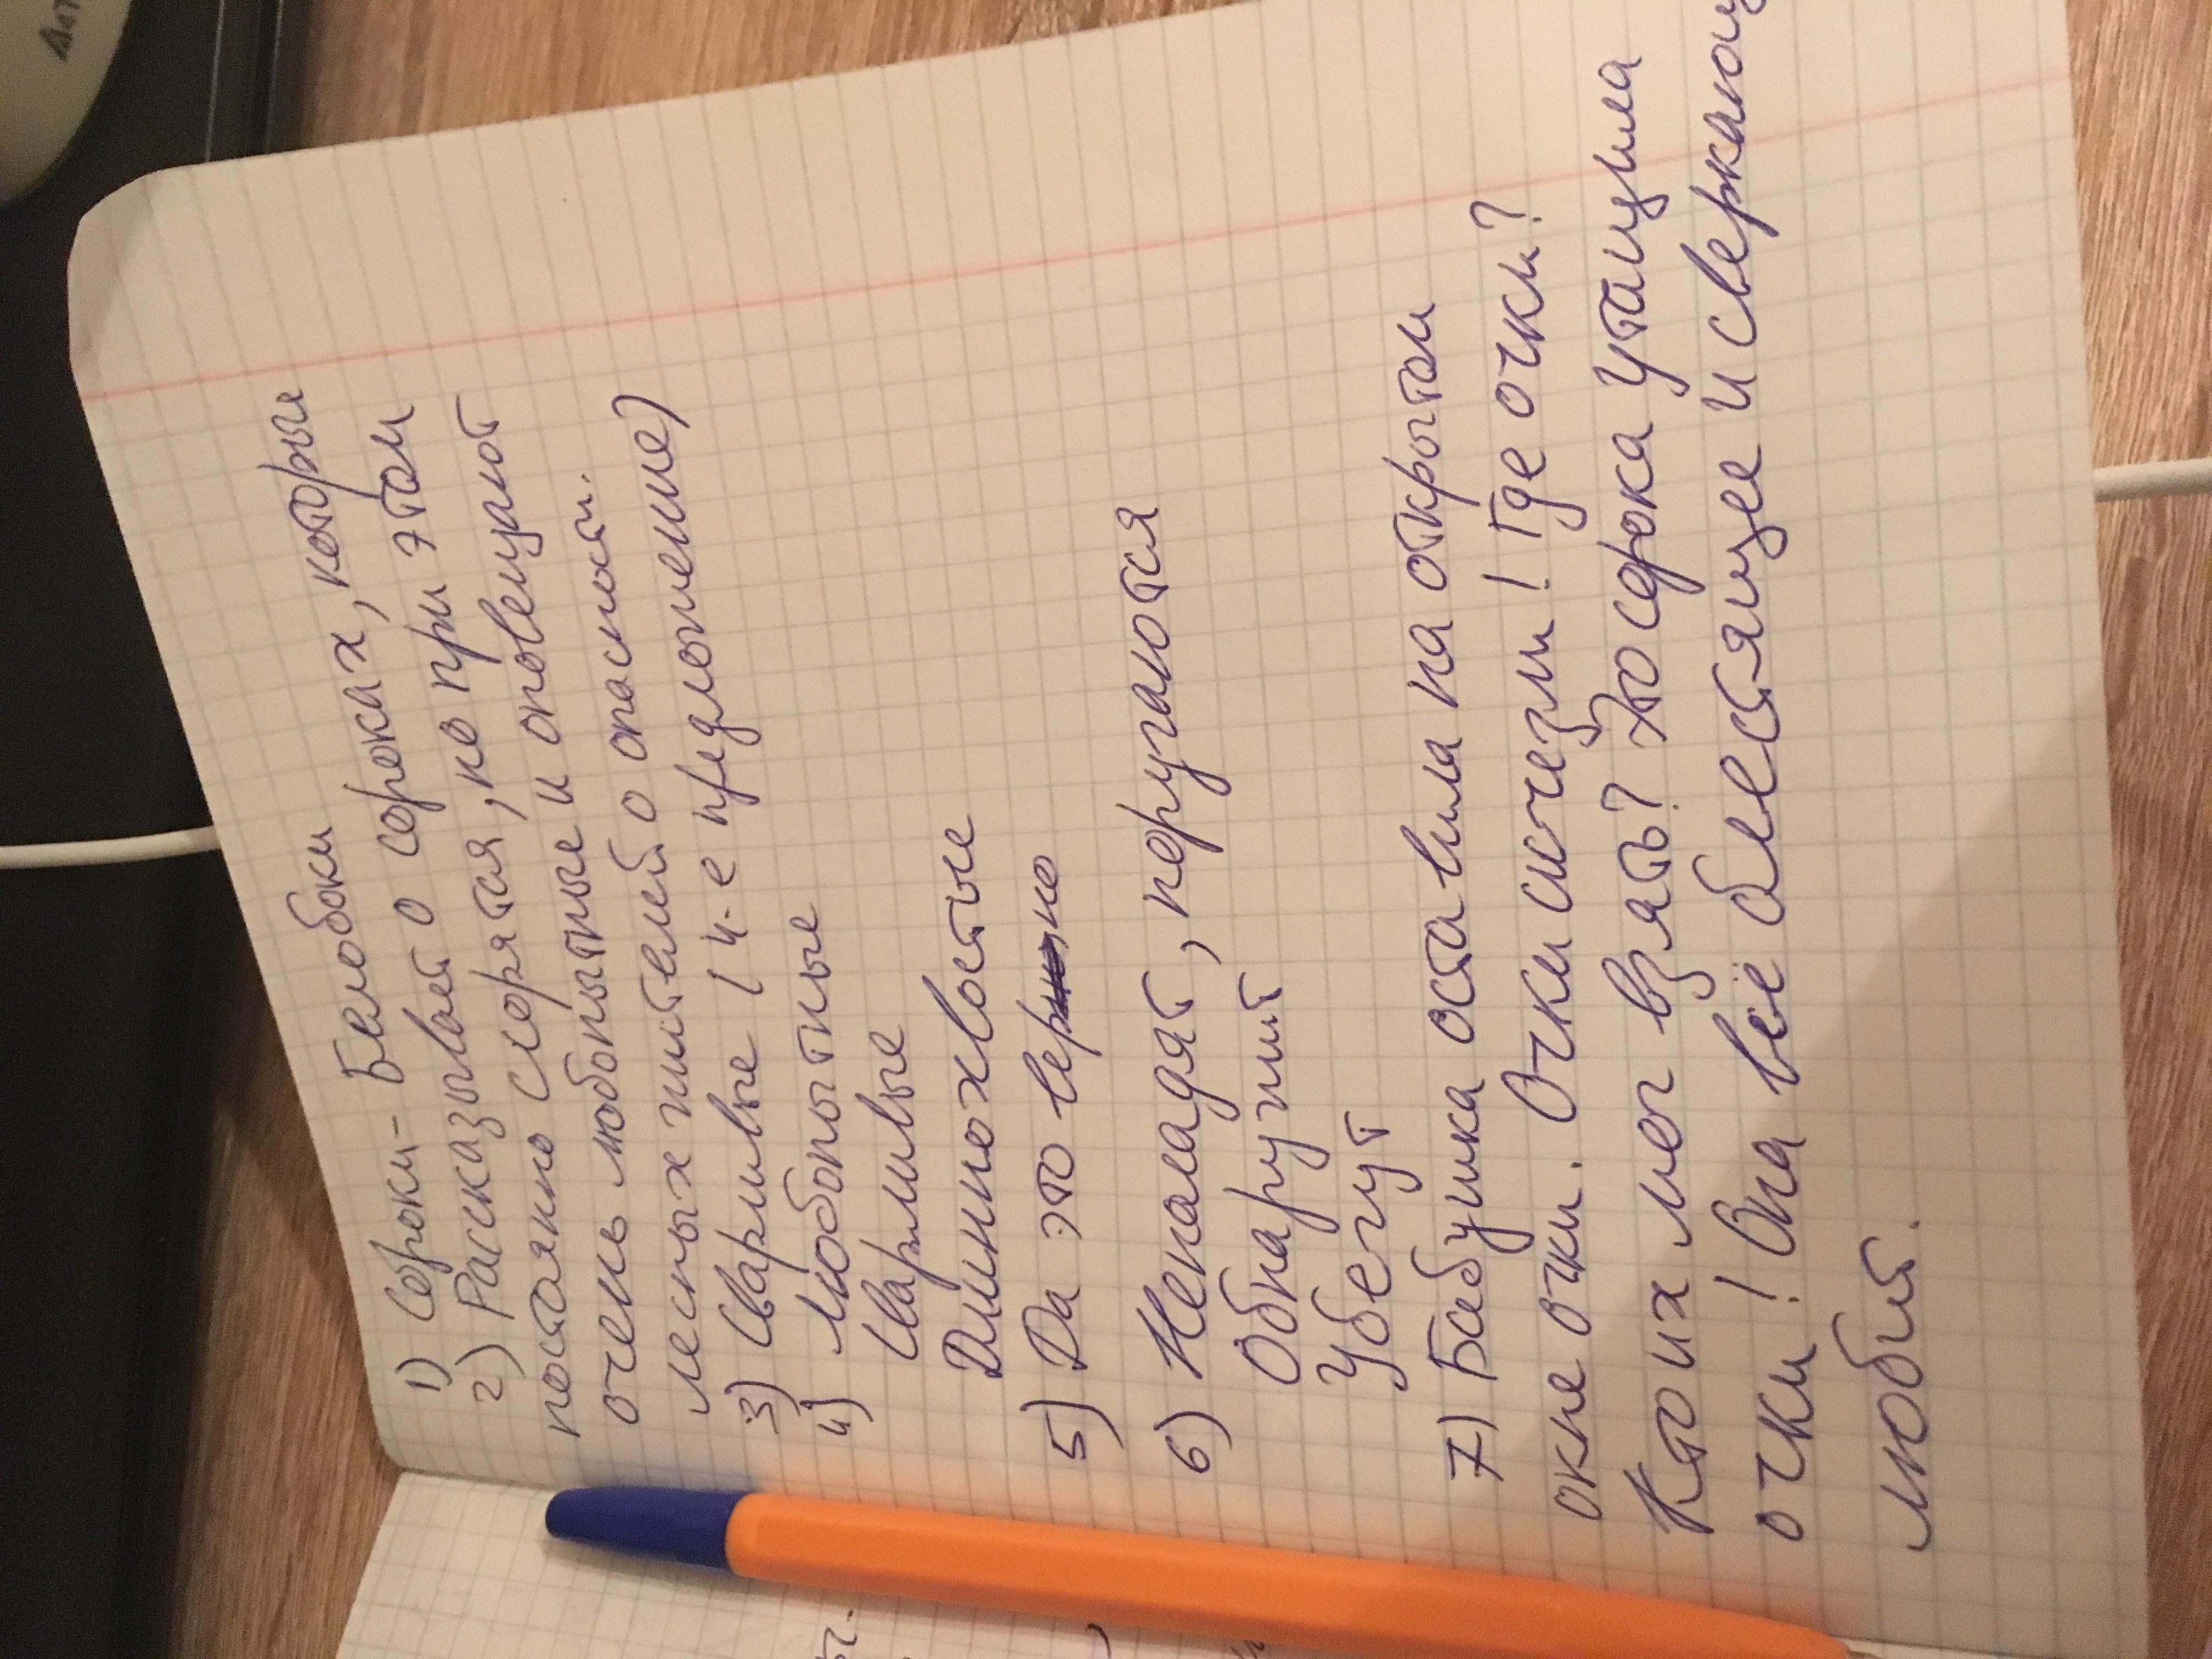 1) Сороки - Белобоки
2) Рассказывает о сороках, которые
постоянно сорятся, но при этом
очень любопытные и оповещают
лесных жителей о опасности.
3) Сварливые (4-е предложение)
4) Любопытные
Сварливые
Длиннохвостые
5) Да это верно
6) Не поладят, поругаются
Обнаружит
Убегут
7) Бабушка оставила на открытом
окне очки. Очки исчезли! Где очки?
Кто их мог взять? Это сорока утащила
очки! Она всё блестящее и сверкающ
любит.